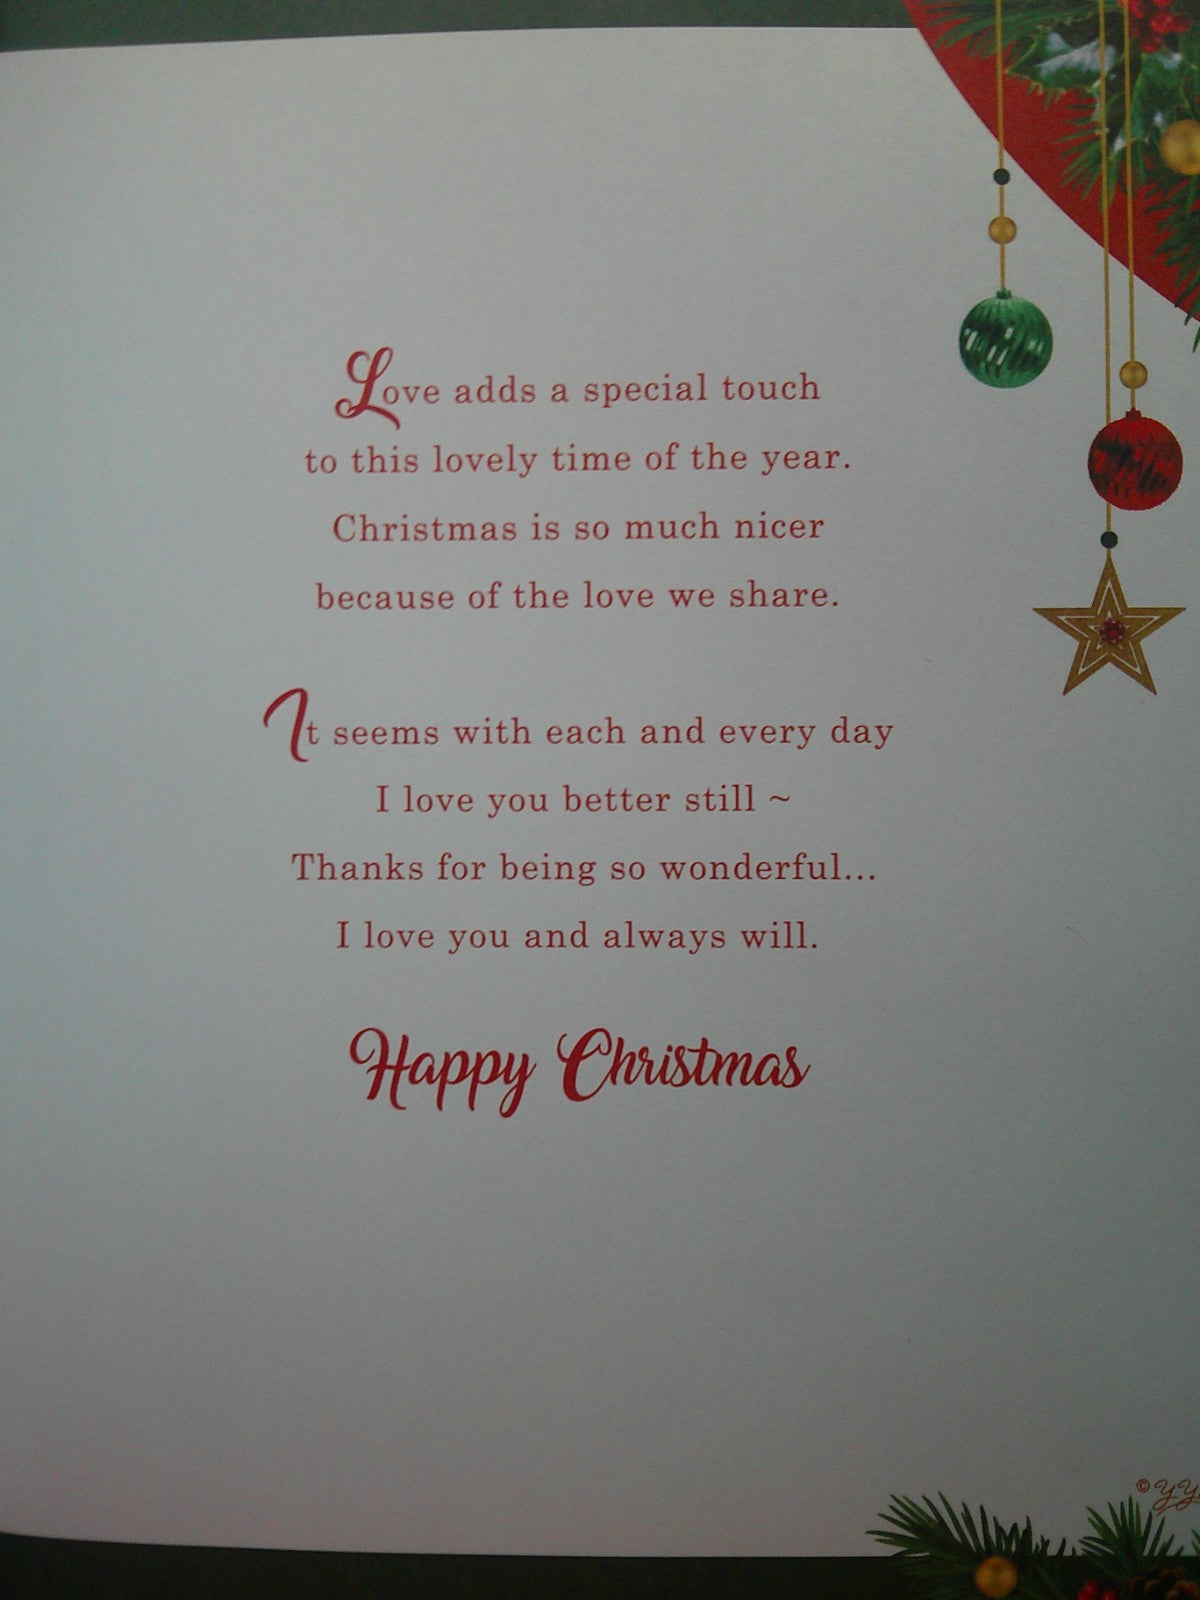 Love adds a special touch
to this lovely time of the year.
Christmas is so much nicer
because of the love we share.
It seems with each and every day
I love you better still ~
Thanks for being so wonderful...
I love you and always will.
Happy Christmas